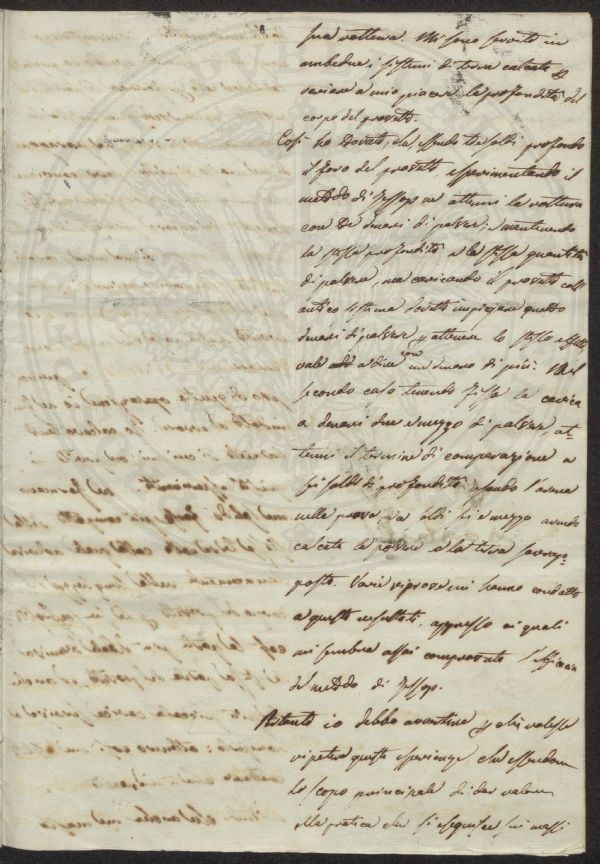 8
sua rottura. Mi sono servito in
ambedue i sistemi di terra calcata p
variare a mio piacere la profondità del
corpo del provetto.
Così ho trovato, che essendo tre soldi profondo
il foro del provetto, esperimentando il
metodo di Jessop ne ottenni la rottura
con tre denari di polvere; e mantenendo
la stessa profondità e la stessa quantità
di polvere, ma caricando il provetto coll'
antico sistema dovetti impiegare quattro
denari di polvere p ottenere lo stesso effetto
vale a dire con un denaro di più. Nel
secondo caso tenendo fissa la carica
a denari due e mezzo di polvere, ot-
tenni il termine di comparazione a
sei soldi di profondità, essendo l'arena
nella prova, e a soldi sei e mezzo avendo
calcata la polvere e la terra sovrap-
posta. Varie riprove mi hanno condotto
a questi resultati, appresso ai quali
mi sembra assai comprovata l'efficacia
del metodo di Jessop.
Pertanto io debbo avvertire p chi volesse
ripetere queste esperienze, che essendo
lo scopo principale di dar valore
alla pratica che si eseguisce sui massi